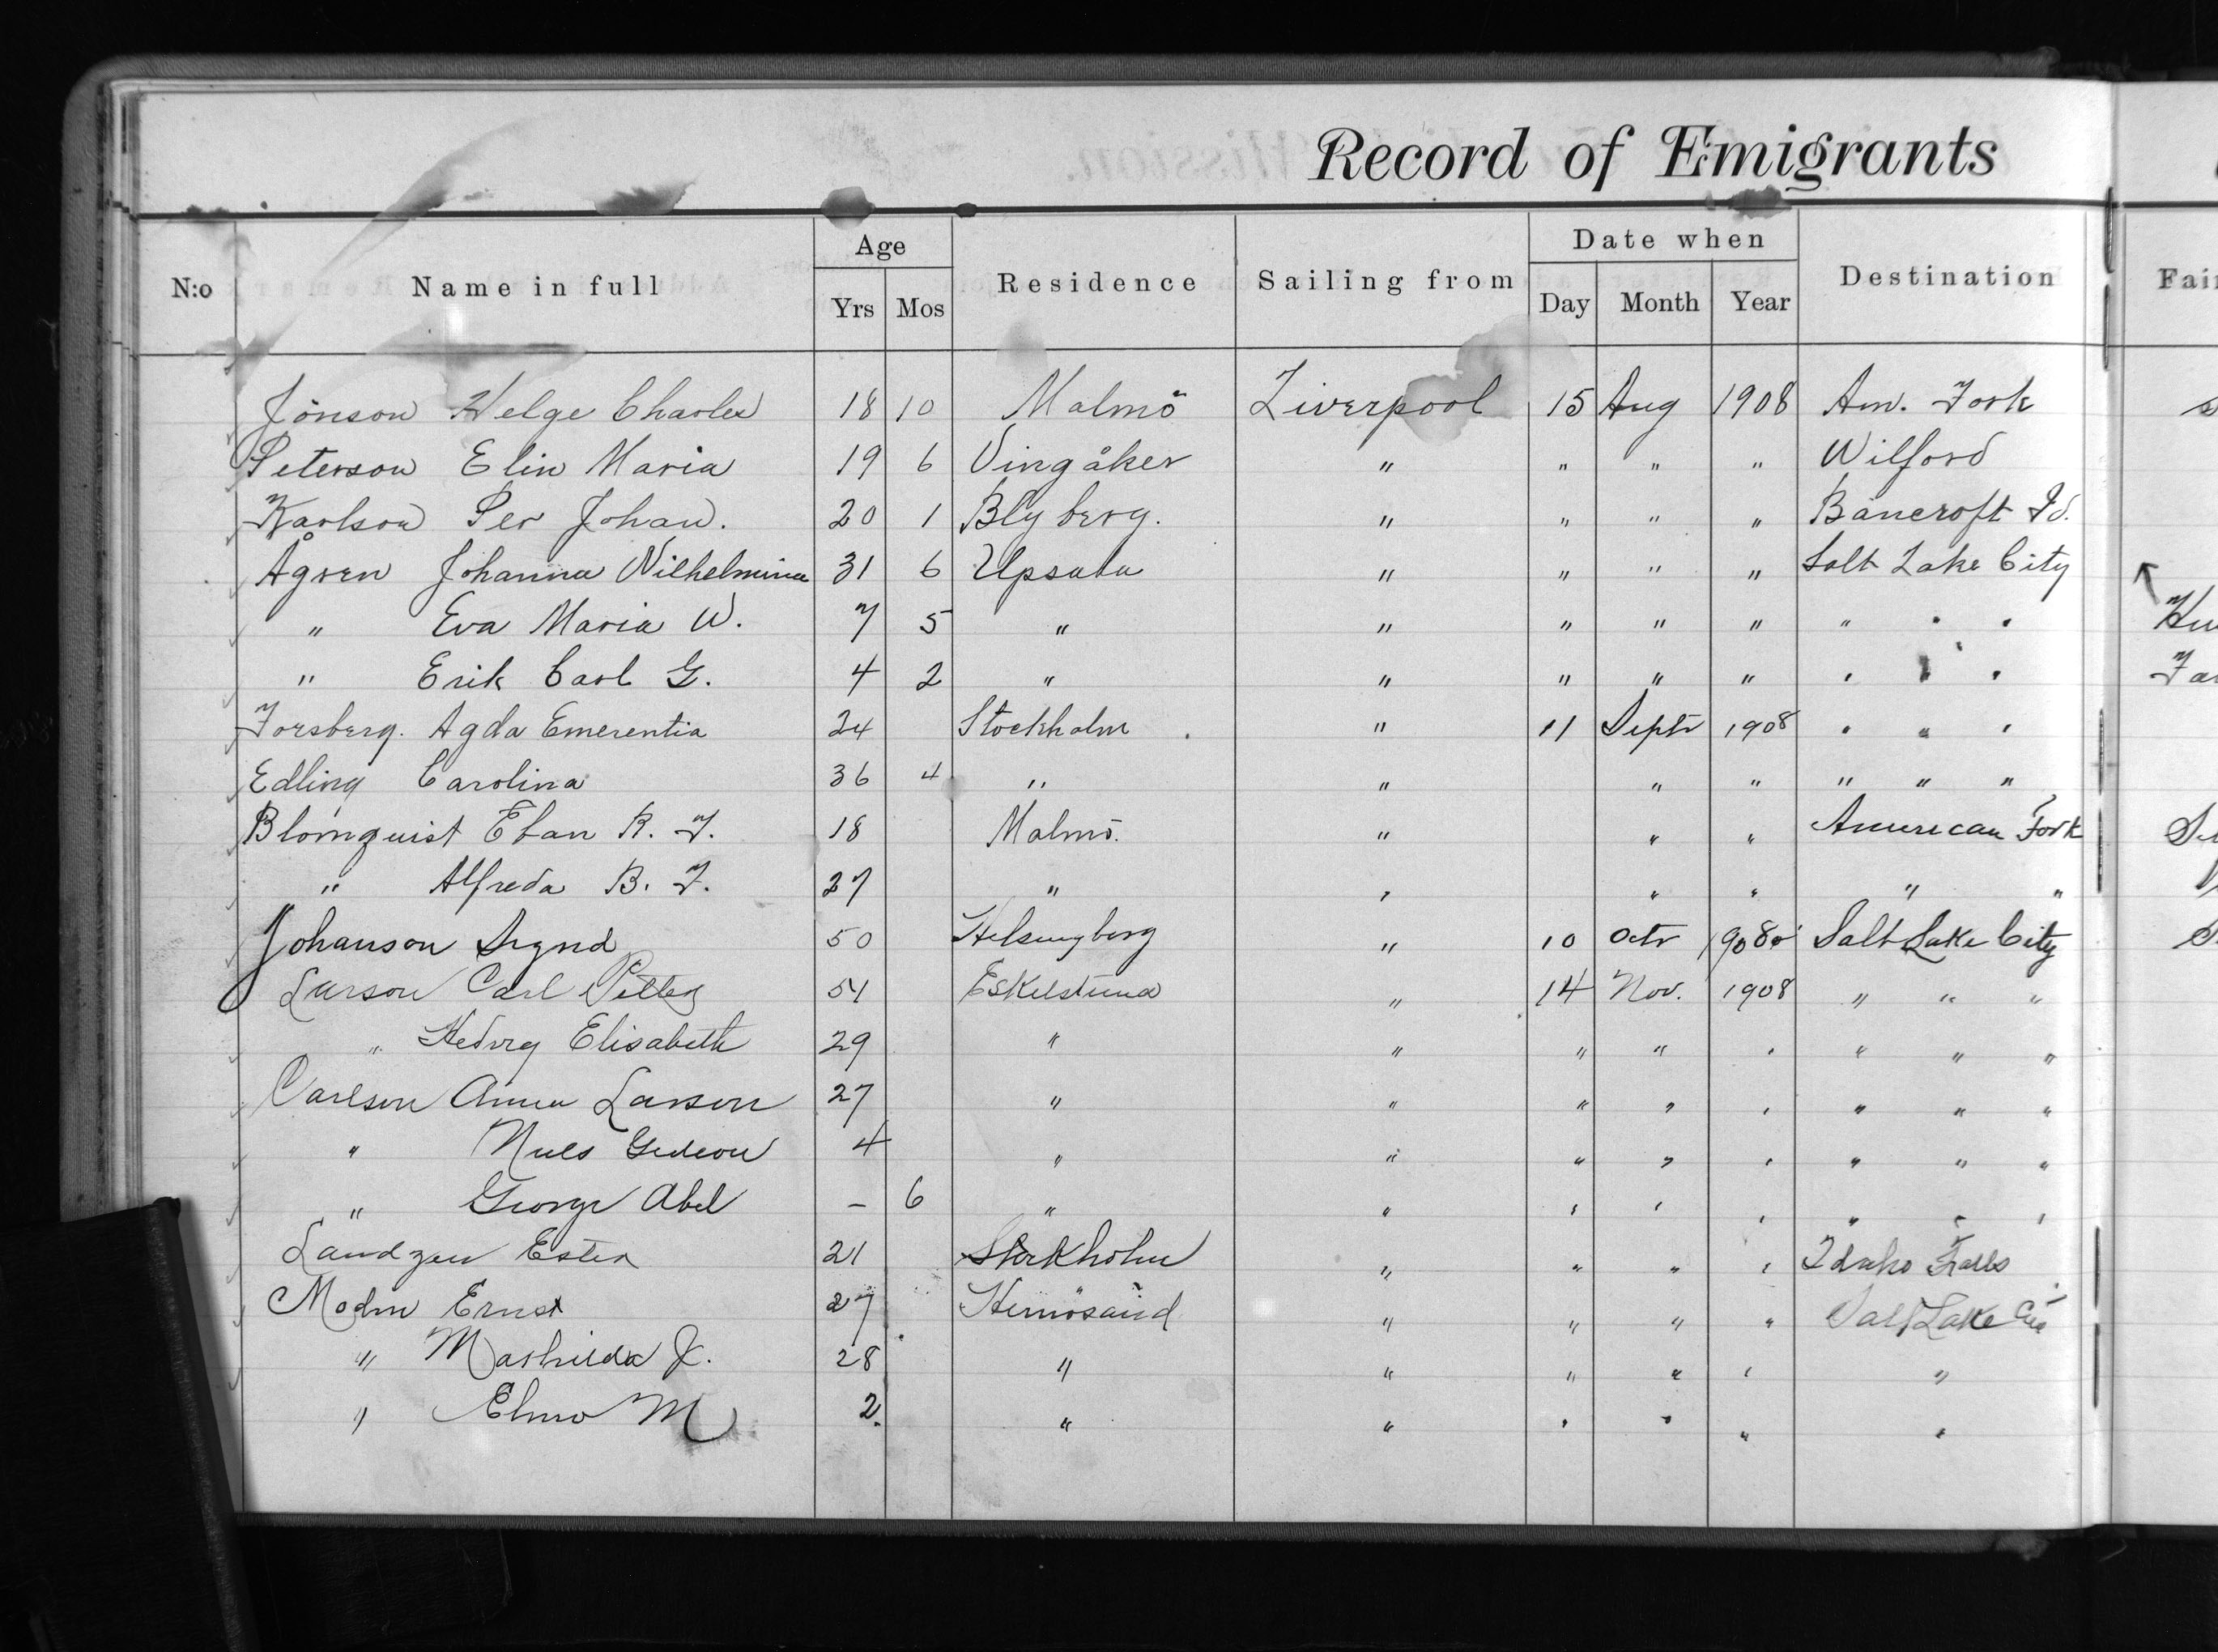 Record of Emigrants
N:o Name in full Age Residence Sailing from Date when Destination
Yrs Mos Day Month Year
Jönson Helge Charles 18 10 Malmö Liverpool 15 Aug 1908 Am. Fork
Peterson Elin Maria 19 6 Vingåker " " " " Wilford
Karlson Per Johan. 20 1 Blyberg. " " " " Bancroft Id.
Ågren Johanna Wilhelmina 31 6 Upsala " " " " Salt Lake City
" Eva Maria W. 7 5 " " " " " " " "
" Erik Carl G. 4 2 " " " " " " " "
Forsberg. Agda Emerentia 24 Stockholm " 11 Septr 1908 " " "
Edling Carolina 36 4 " " " " " " "
Blomquist Eban R. F. 18 Malmö. " " " American Fork
" Alfreda B. F. 27 " " " " " "
Johanson Sigrid 50 Helsingborg " 10 Octr 1908 Salt Lake City
Larson Carl Petter 51 Eskelstuna " 14 Nov. 1908 " " "
" Hedvig Elisabeth 29 " " " " " " " "
Carlson Anna Larson 27 " " " " " " " "
" Nils Gideon 4 " " " " " " " "
" George Abel – 6 " " " " " " " "
Ester 21 Stockholm " " " " Idaho Falls
Modin Ernst 27 Hernösand " " " " Salt Lake
" Mathilda J. 28 " " " " " "
" Elmo M 2. " " " " " "